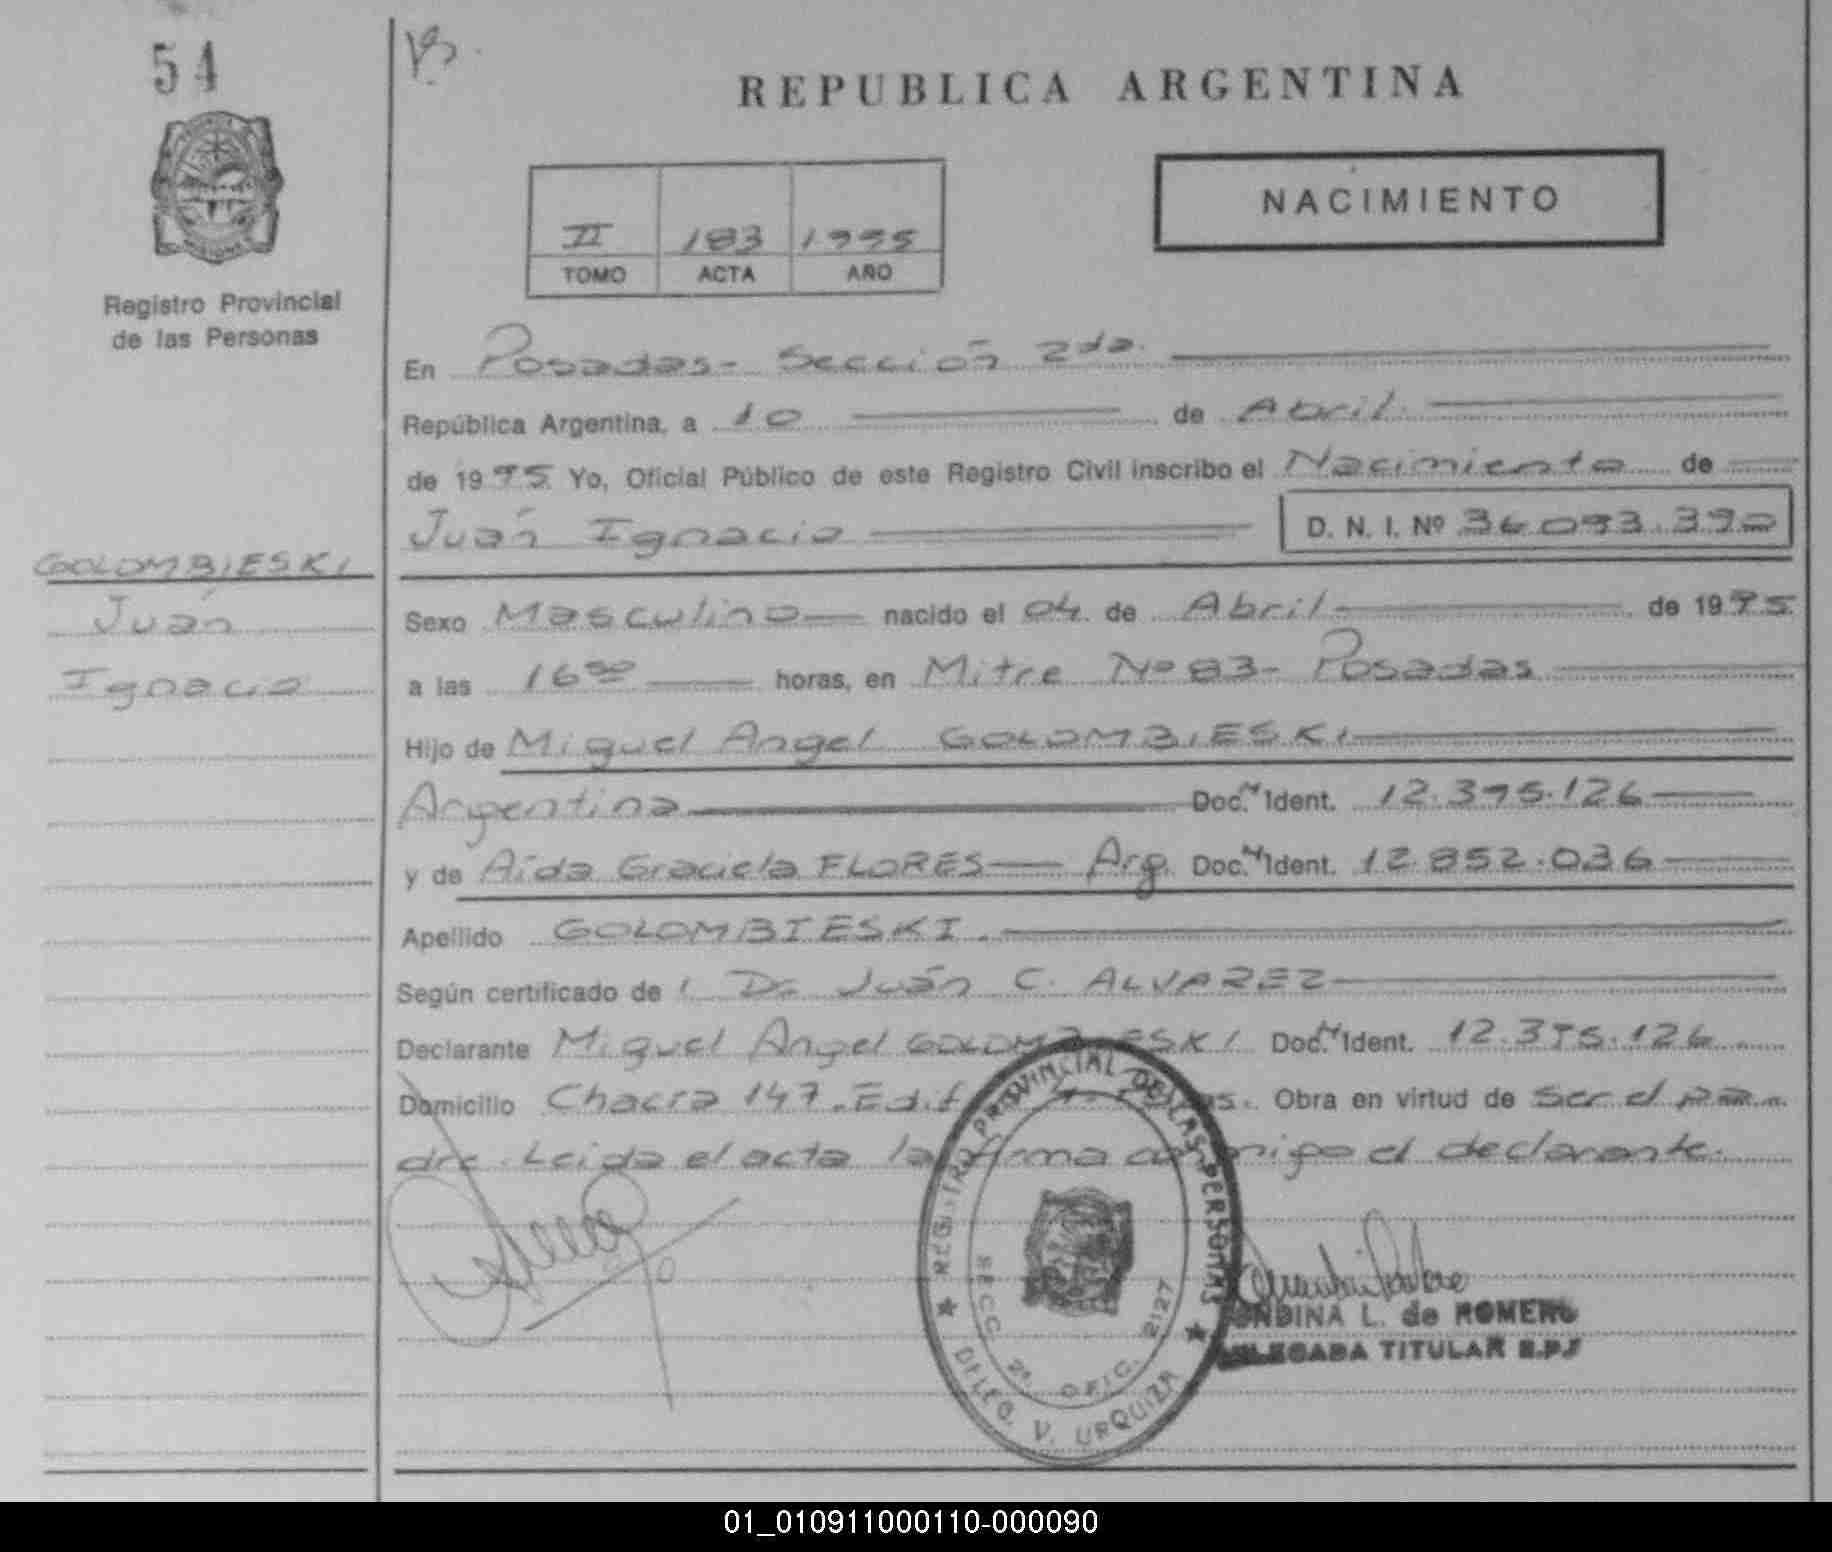 54
REPUBLICA ARGENTINA
NACIMIENTO
II 183 1995
TOMO ACTA AÑO
Registro Provincial
de las Personas
En Posadas - Sección 2da.
República Argentina, a 10 de Abril
de 1995 Yo, Oficial Público de este Registro Civil inscribo el Nacimiento de
Juán Ignacio D. N. I. Nº 36.093.390
GOLOMBIESKI
Juán
Ignacio
Sexo Masculino nacido el 04 de Abril de 1995
a las 16 horas, en Mitre Nº 83 - Posadas
Hijo de Miguel Angel GOLOMBIESKI
Argentina Doc. N Ident. 12.395.126
y de Aída Graciela FLORES Arg. Doc. N Ident. 12.852.036
Apellido GOLOMBIESKI.
Según certificado de l Dr. Juán C. ALVAREZ
Declarante Miguel Angel GOLOMBIESKI Doc. N Ident. 12.395.126
Domicilio Chacra 147. Edif Obra en virtud de Ser el pa
dre. Leida el acta la firma conmigo el declarante.
REGISTRO PROVINCIAL DE LAS PERSONAS
SECC. 2ª. OFIC. 2127
DELEG. V. URQUIZA
ONDINA L. de ROMERO
DELEGADA TITULAR
01_010911000110-000090